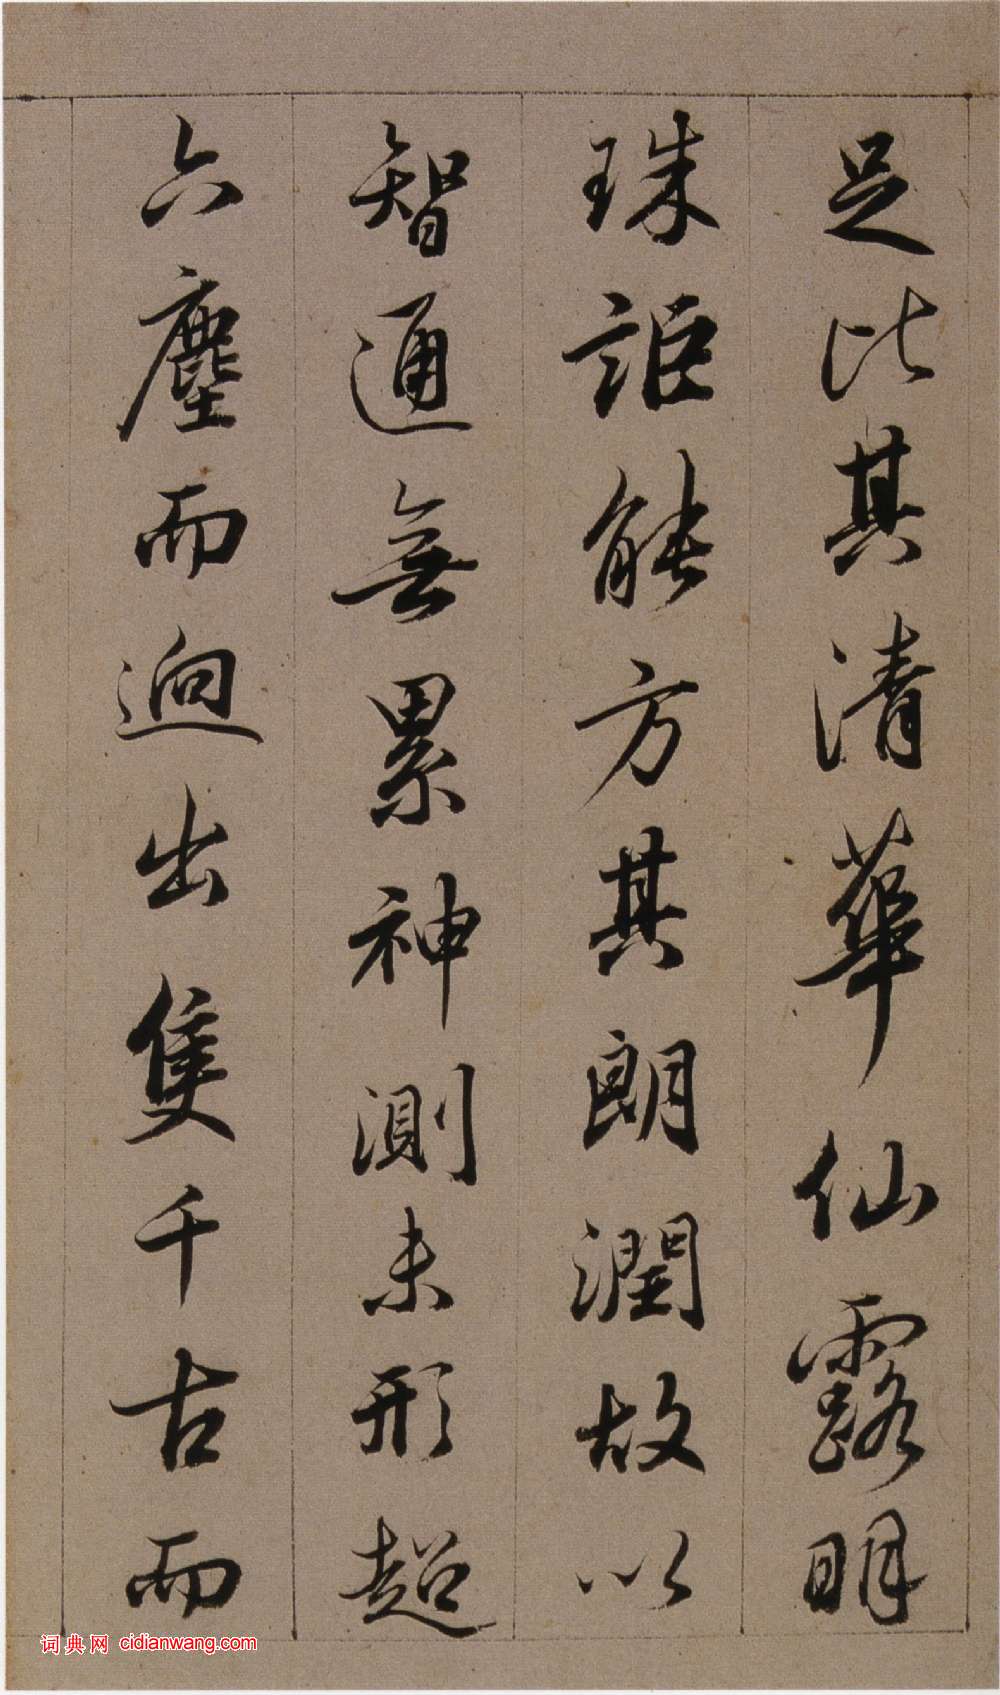 足比其清華仙露明
珠詎能方其朗潤故以
智通無累神測未形超
六塵而迥出隻千古而
词典网 cidianwang.com